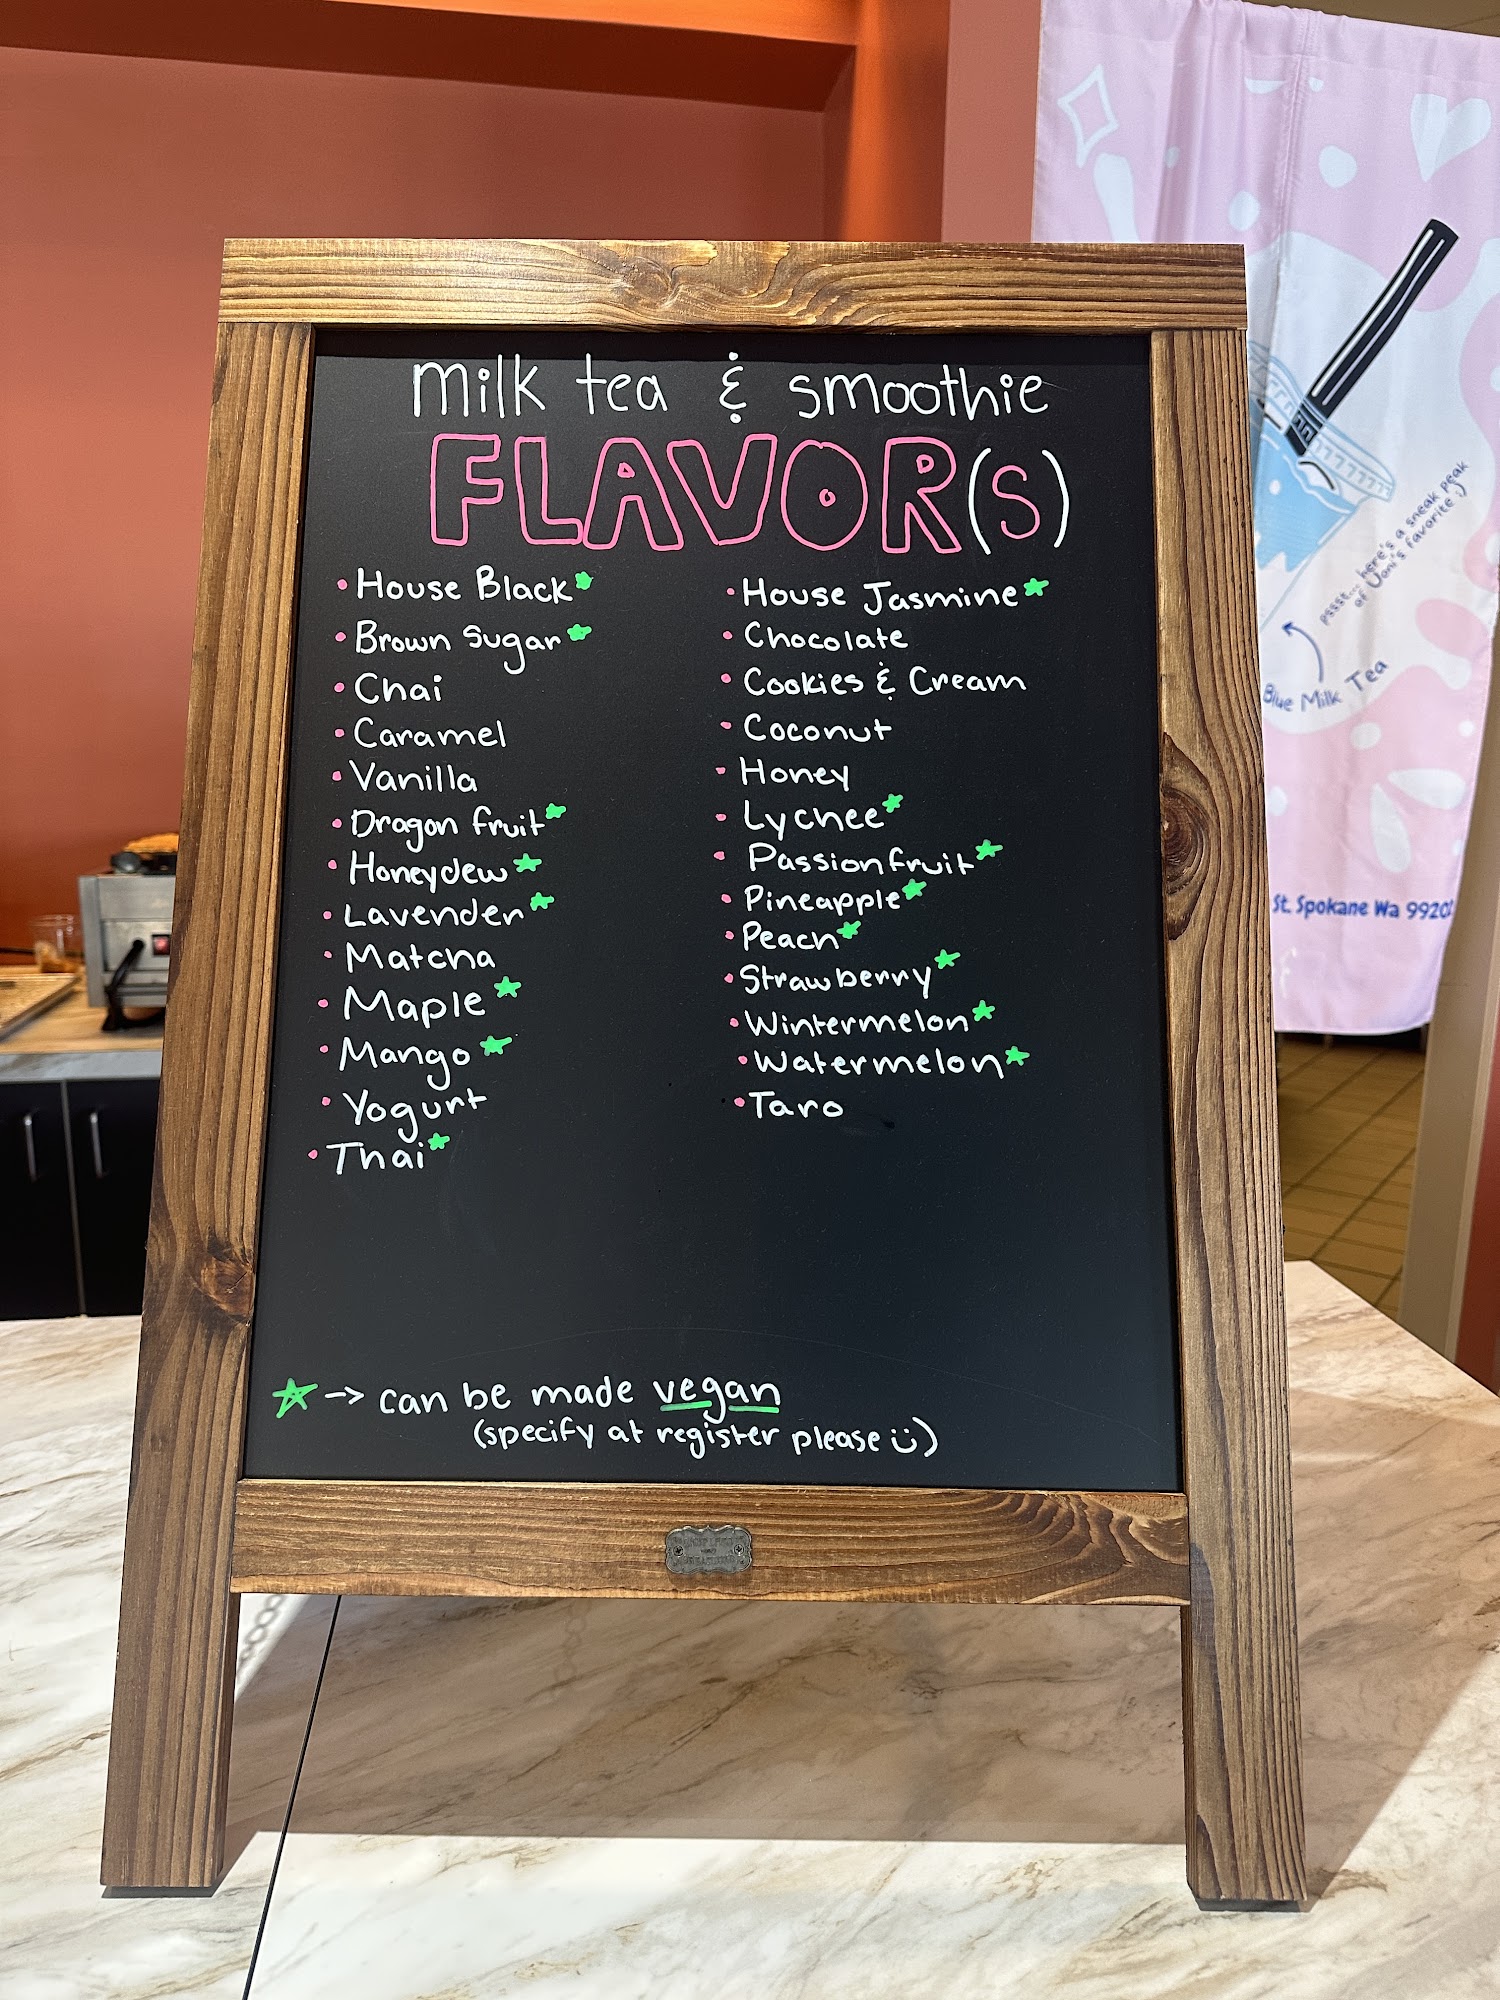 milk tea & smoothie
FLAVOR(s)
• House Black
• Brown Sugar
• Chai
• Caramel
• Vanilla
• Dragon fruit
• Honeydew
• Lavender
• Matcha
• Maple
• Mango
• Yogurt
• Thai
• House Jasmine
• Chocolate
• Cookies & Cream
• Coconut
• Honey
• Lychee
• Passionfruit
• Pineapple
• Peach
• Strawberry
• Wintermelon
• Watermelon
• Taro
★ → can be made vegan
(specify at register please ü)
pssst... here's a sneak peak
of Uoni's favorite :)
Blue Milk Tea
St. Spokane Wa 9920